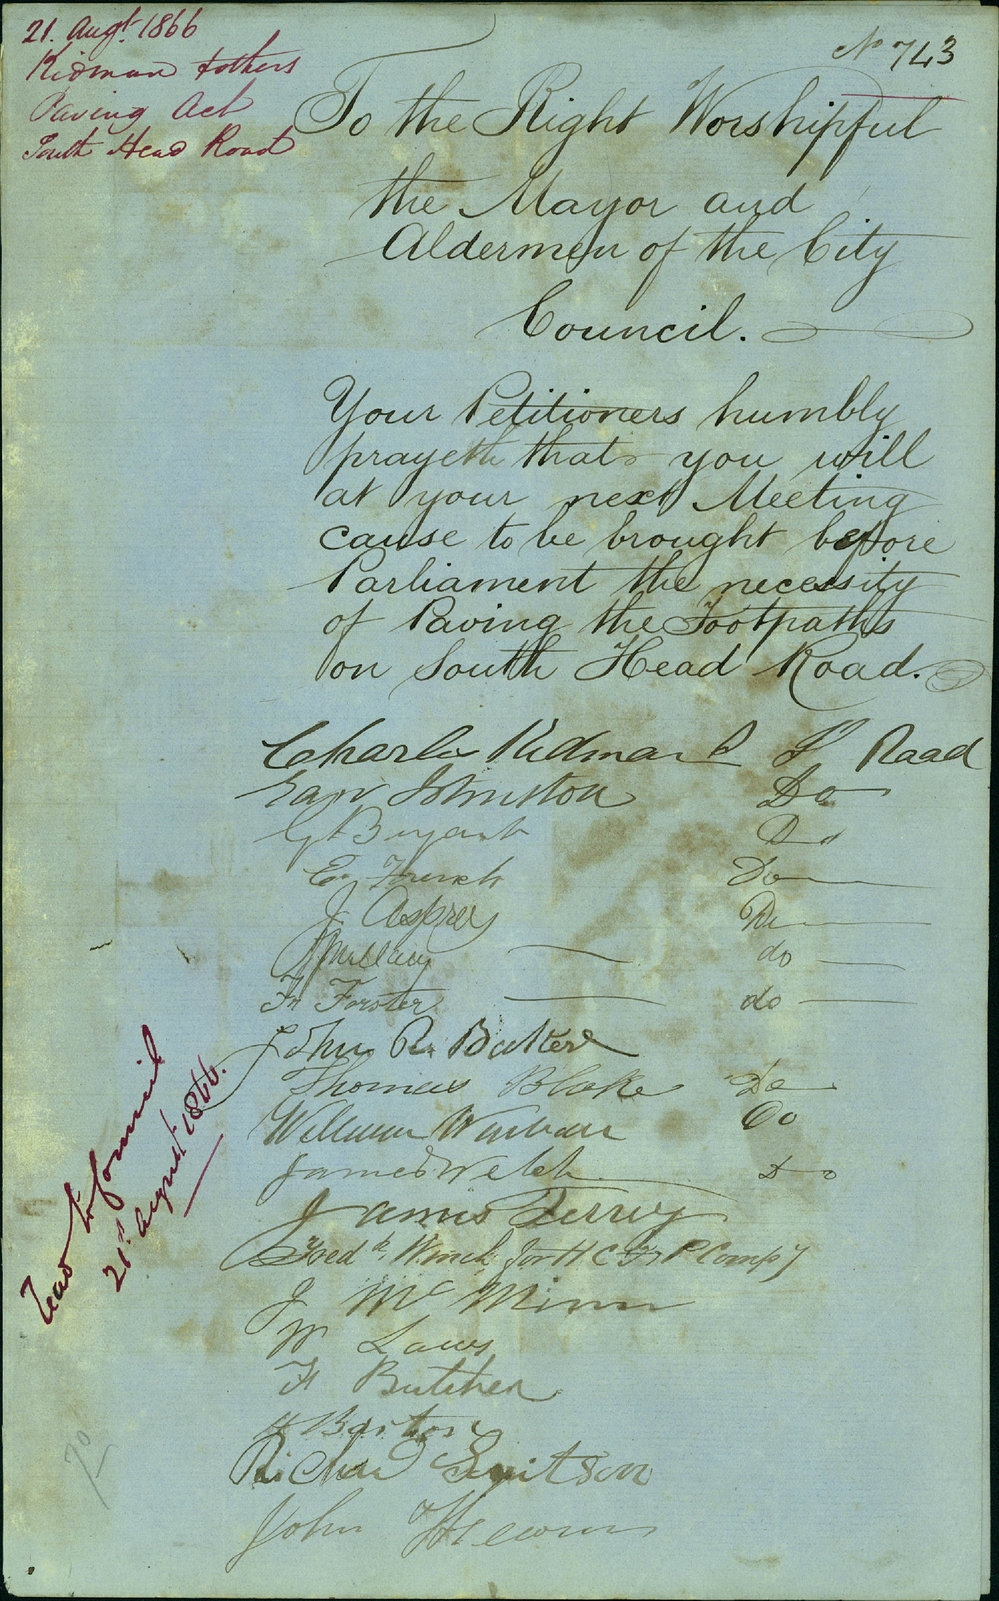 21. Augt. 1866
Kidman & others
Paving Act
South Head Road
No 743
To the Right Worshipful
the Mayor and
Aldermen of the City
Council.
Your Petitioners humbly
prayeth that you will
at your next Meeting
cause to be brought before
Parliament the necessity
of Paving the Footpaths
on South Head Road.
Charles Kidman S Road
Johnston Do
Bryant Do
E. French Do
J Asprey Do
do
Fr Forster do
John R. Baker
Thomas Blake Do
William Do
James Welch Do
James Perry
Fredk. Winch for H C Compy
J Mc Minn
W Laws
Butcher
H Barton
Richd
John
Read to Council
21st August 1866.
70